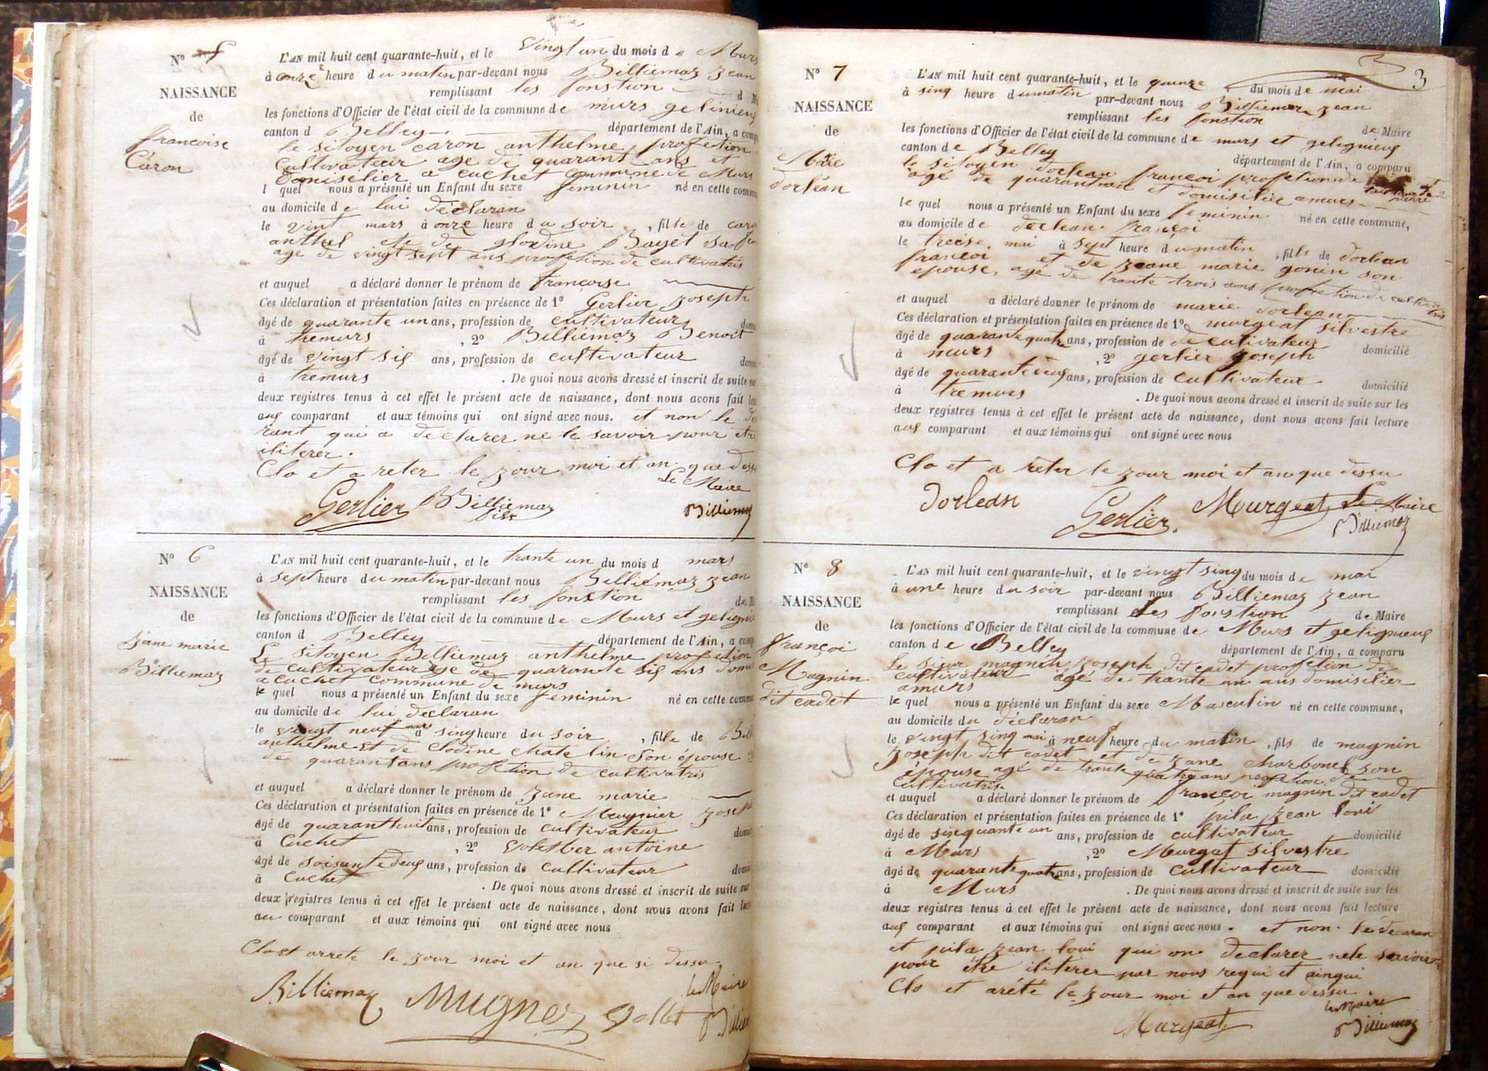 N° 5
NAISSANCE
de
françoise
Caron
L'AN mil huit cent quarante-huit, et le vingt un du mois d e Mars
à onze heure du matin par-devant nous Billiemaz Jean
remplissant les fonstion
les fonctions d'Officier de l'état civil de la commune de murs gelinieu
canton d Belley département de l'Ain, a comp
le sitoyen caron anthelme profetion
Cultivateur age de quarant ans et
domiselier a cuchet commune de Murs
l quel nous a présenté un Enfant du sexe feminin né en cette comm
au domicile de lui déclaran
le vint mars à onze heure du soir, fille de caro
anthel et de glodine Bayet sa
age de vingt sept ans profetion de cultivatris
et auquel a déclaré donner le prénom de françoise
Ces déclaration et présentation faites en présence de 1° Gerlier Joseph
âgé de quarante un ans, profession de cultivateur
à tremurs, 2° Billiemaz Benoit
âgé de vingt sis ans, profession de cultivateur
à tremurs. De quoi nous avons dressé et inscrit de suite sur
deux registres tenus à cet effet le présent acte de naissance, dont nous avons fait lec
aus comparant et aux témoins qui ont signé avec nous. et non le de
rant qui a declarer ne le savoir pour etre
iliterer.
Clo et a reter le jour moi et an que dessu
Le Maire
Gerlier Billiemaz Billiemaz
N° 6
NAISSANCE
de
Jane marie
Billiemaz
L'AN mil huit cent quarante-huit, et le trante un du mois d mars
à sept heure du matin par-devant nous Billiémaz Jean
remplissant les fonstion de M
les fonctions d'Officier de l'état civil de la commune de Murs et geligni
canton d Belley département de l'Ain, a comp
Le Sitoyen Billiemaz anthelme profetion
de cultivateur age de quarante sis ans domi
a cuchet commune de murs
le quel nous a présenté un Enfant du sexe feminin né en cette commu
au domicile de lui declaran
le vingt neuf mars à sing heure du soir, fille de Bil
anthelme et de Clodine Chate lin son épouse
de quarant ans profetion de cultivatris
et auquel a déclaré donner le prénom de Jane marie
Ces déclaration et présentation faites en présence de 1° Meugnier Josep
âgé de quaranthuit ans, profession de cultivateur
à Cuchet, 2° antoine
âgé de soisante deus ans, profession de cultivateur
à Cuchet. De quoi nous avons dressé et inscrit de suite sur
deux registres tenus à cet effet le présent acte de naissance, dont nous avons fait lec
au comparant et aux témoins qui ont signé avec nous
Clo et arrete le jour moi et an que si dessu
le Maire
Billiemaz Mugnez Billiem
3
N° 7
NAISSANCE
de
Marie
dorléan
L'AN mil huit cent quarante-huit, et le quinze du mois de mai
à sing heure du matin par-devant nous Billiemaz Jean
remplissant les fonstion de Maire
les fonctions d'Officier de l'état civil de la commune de murs et geligneus
canton de Belley département de l'Ain, a comparu
le sitoyen dorlean françoi profetion de
agé de quarant et domisilié amurs
le quel nous a présenté un Enfant du sexe feminin né en cette commune,
au domicile de dorlean françoi
le treese mai à sept heure du matin, fils de dorlean
francoi et de Jeane marie gonin son
epouse, age de trante trois ans profetion de cultivatris
et auquel a déclaré donner le prénom de marie dorlean
Ces déclaration et présentation faites en présence de 1° murgeat silvestre
âgé de quarante quatre ans, profession de cultivateur
à murs, 2° gerlier Joseph domicilié
âgé de quarante deus ans, profession de cultivateur
à tremurs. De quoi nous avons dressé et inscrit de suite sur les
deux registres tenus à cet effet le présent acte de naissance, dont nous avons fait lecture
aus comparant et aux témoins qui ont signé avec nous
Clo et a réter le jour moi et an que dessu
dorlean Gerlier Murgeat Le Maire
Billiemaz
N° 8
NAISSANCE
de
françoi
Magnin
dit cadet
L'AN mil huit cent quarante-huit, et le vingt sing du mois de mai
à une heure du soir par-devant nous Billiemaz Jean
remplissant Les fonstion de Maire
les fonctions d'Officier de l'état civil de la commune de Murs et geligneus
canton de Belley département de l'Ain, a comparu
le sieur magnin Joseph dit cadet profetion de
cultivateur agé de trante un ans domisilier
amurs
le quel nous a présenté un Enfant du sexe Masculin né en cette commune,
au domicile du déclaran
le vingt sing mai à neuf heure du matin, fils de magnin
Joseph dit cadet et de Jane charbonel son
épouse agé de trante quatre ans profetion de
cultivatris
et auquel a déclaré donner le prénom de françoi magnin dit cadet
Ces déclaration et présentation faites en présence de 1° pila Jean loui
âgé de sinquante un ans, profession de cultivateur domicilié
à Murs, 2° Murgat silvestre
âgé de quarante quatre ans, profession de cultivateur domicilié
à Murs. De quoi nous avons dressé et inscrit de suite sur les
deux registres tenus à cet effet le présent acte de naissance, dont nous avons fait lecture
aus comparant et aux témoins qui ont signé avec nous. et non le decaran
et pila Jean loui qui on declarer nele savoir
pour être iliterer par nous requi et ainqui
Clo et arété le jour moi et an que dessu.
le Maire
Murgeat Billiemaz